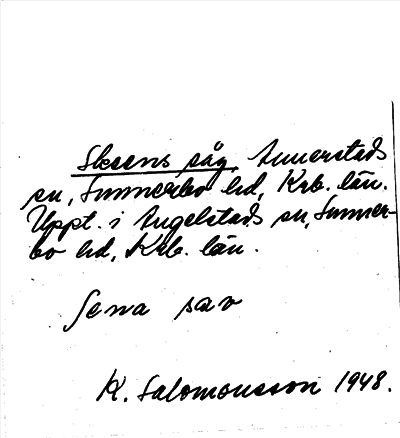 Eksens säg, Annerstads
sn, Sunnerbo hd, Krb. län.
Uppt. i Angelstads sn, Sunner-
bo hd, Krb. län.
sav
K. Salomonsson 1948.